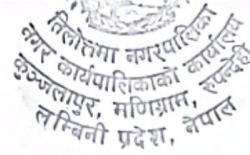 तिलोत्तमा नगरपालिका
नगर कार्यपालिकाको कार्यालय
कुञ्जलापुर, मणिग्राम, रुपन्देही
लुम्बिनी प्रदेश, नेपाल